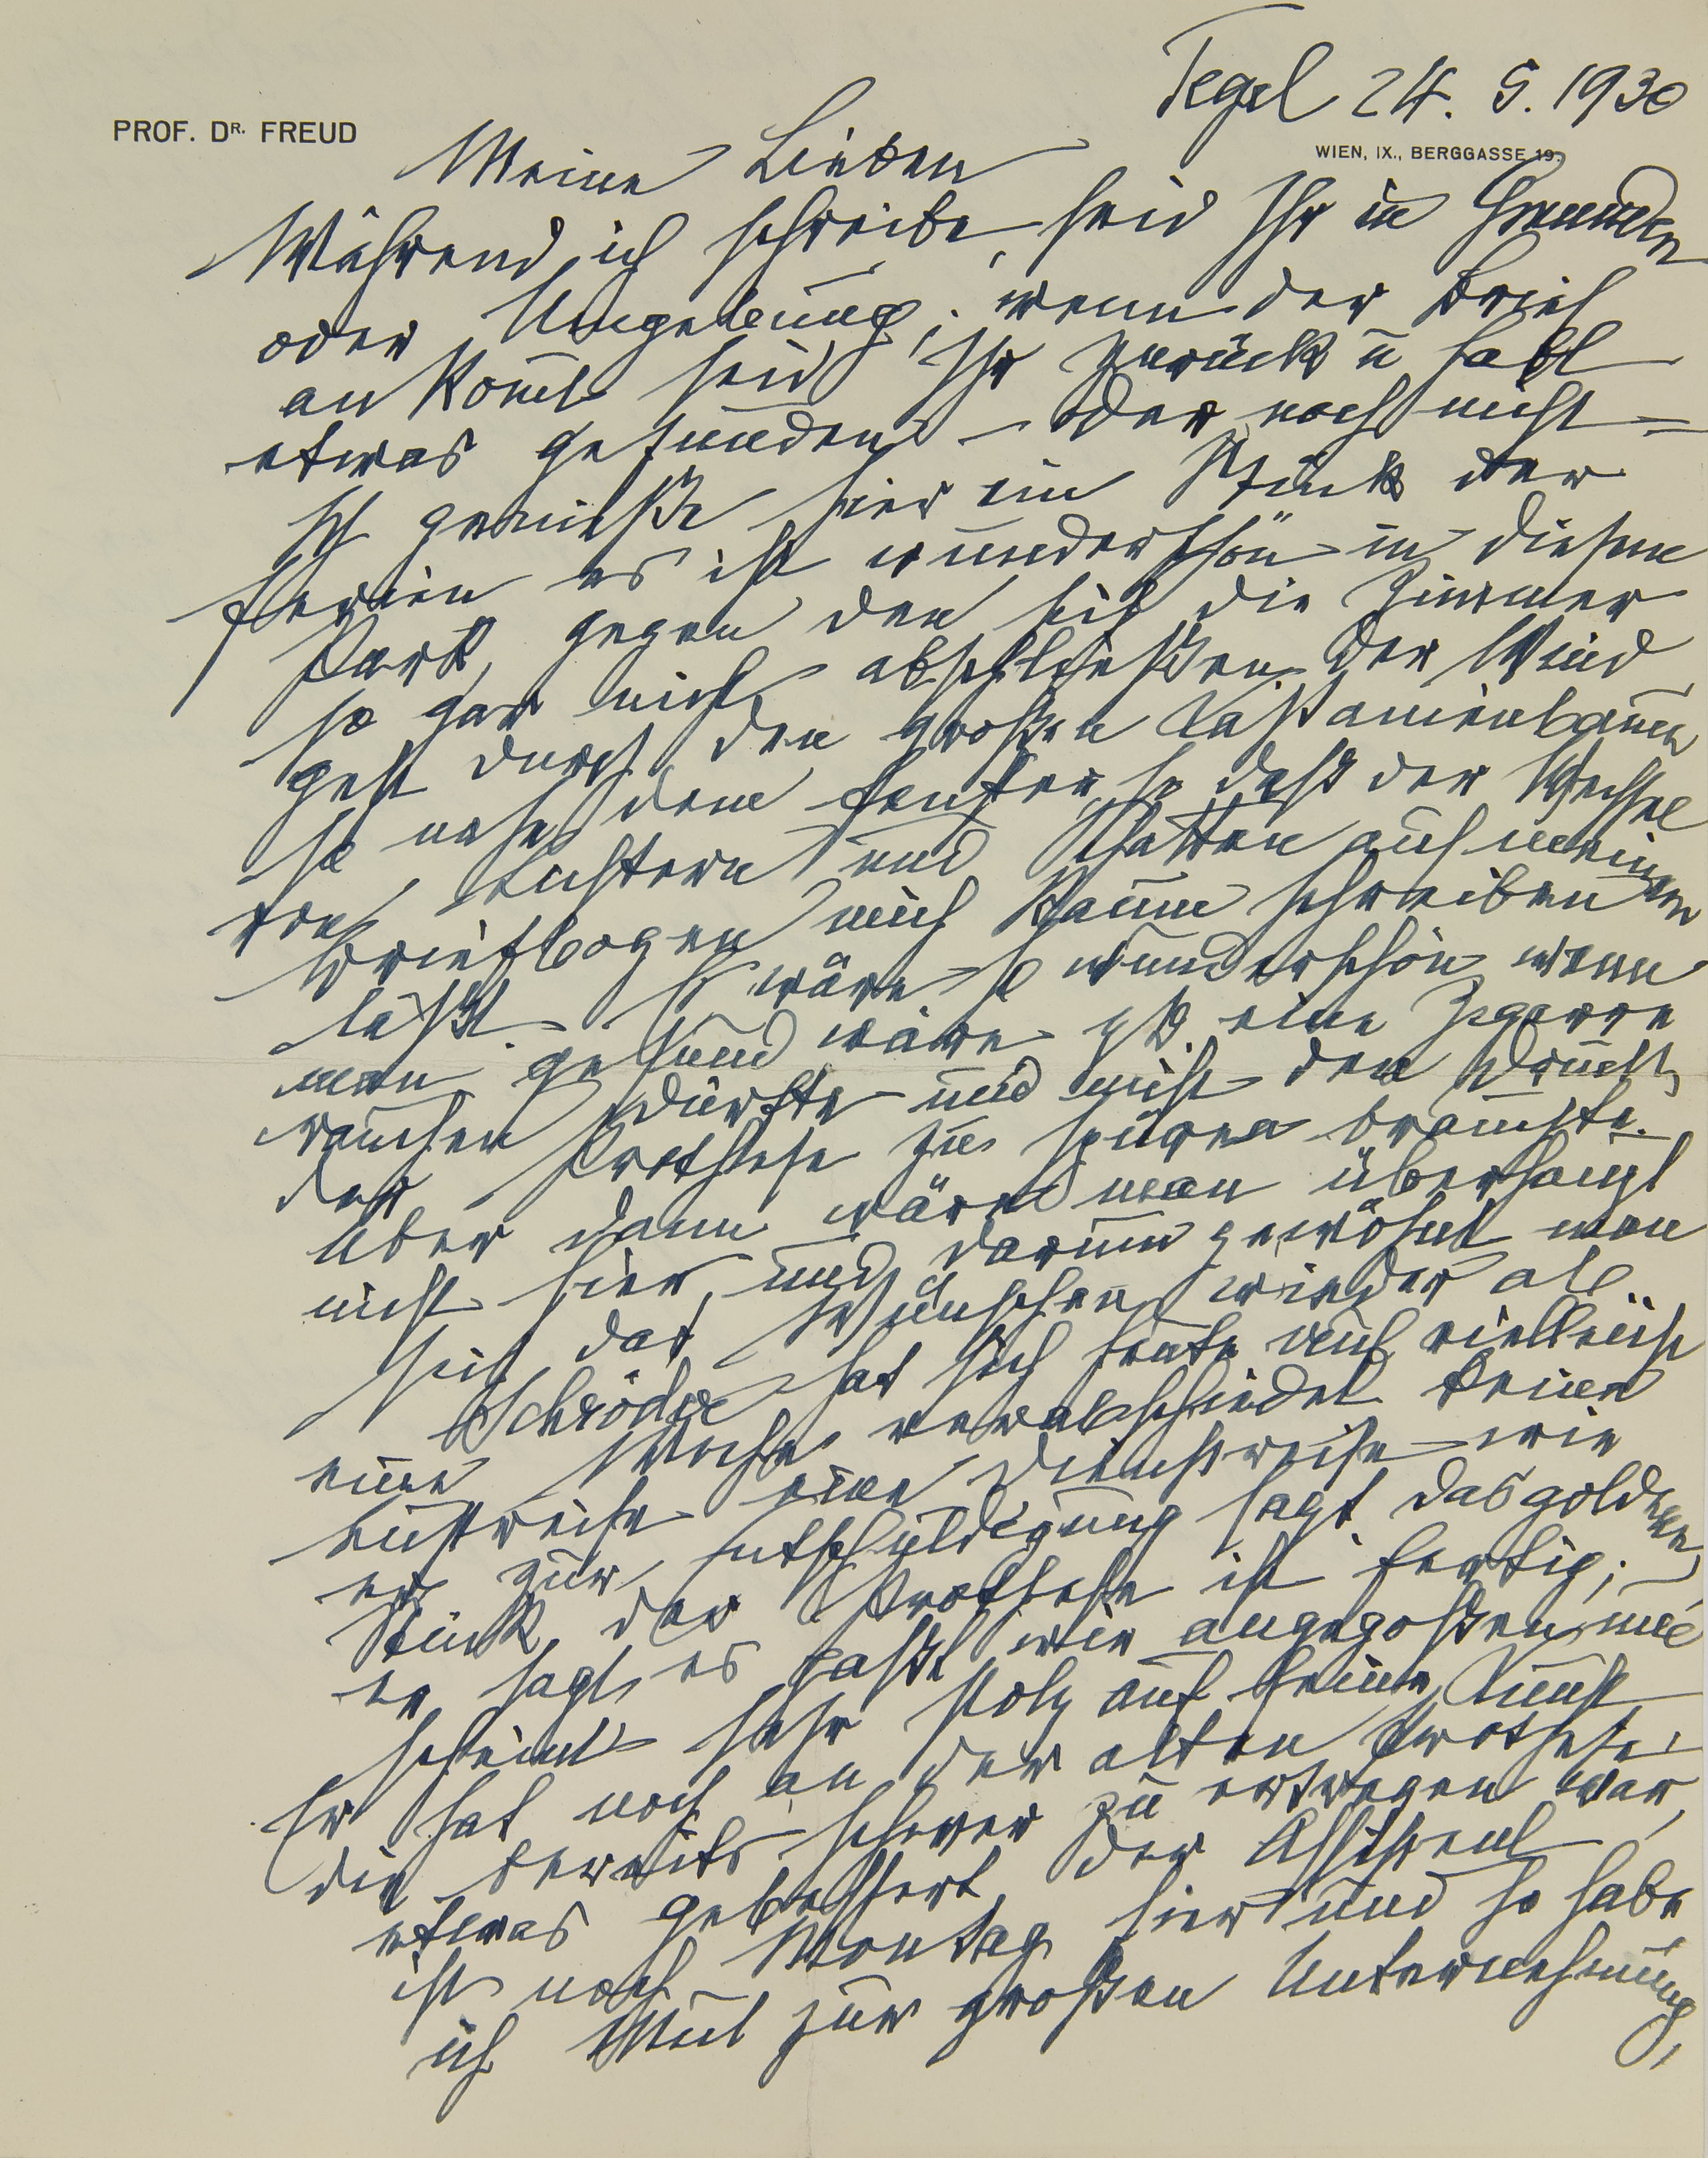 Tegel 24. 5. 1930
PROF. DR. FREUD
WIEN, IX., BERGGASSE 19.
Meine Lieben
Während ich schreibe, seid Ihr in Gmunden
oder Umgebung; wenn der Brief
ankom̄t seid Ihr zurück u habt
etwas gefunden – oder noch nicht –
Ich genieße hier ein Stück der
Ferien es ist wunderschön in diesem
Park, gegen den sich die Zimmer
so gar nicht abschließen. Der Wind
geht durch den großen Kastanienbaum
so nahe dem Fenster, so daß der Wechsel
von Lichtern und Schatten auf meinem
Briefbogen mich kaum schreiben
läßt. Es wäre so wunderschön wenn
man gesund wäre zB. eine Zigarre
rauchen dürfte und nicht den Druck
der Prothese zu spüren brauchte.
Aber dann wäre man überhaupt
nicht hier, und darum gewöhnt man
sich das Wünschen wieder ab.
Schröder hat sich heute auf vielleicht
eine Woche verabschiedet keine
Lustreise eine Dienstreise wie
er zur Entschuldigung sagt. Das goldene
Stück der Prothese ist fertig;
er sagt, es paßt wie angegoßen und
scheint sehr stolz auf seine Kunst
Er hat noch an der alten Prothese,
die bereits schwer zu ertragen war,
etwas gebessert, der Assistent
ist noch Montag hier und so habe
ich Mut zur großen Unternehmung,